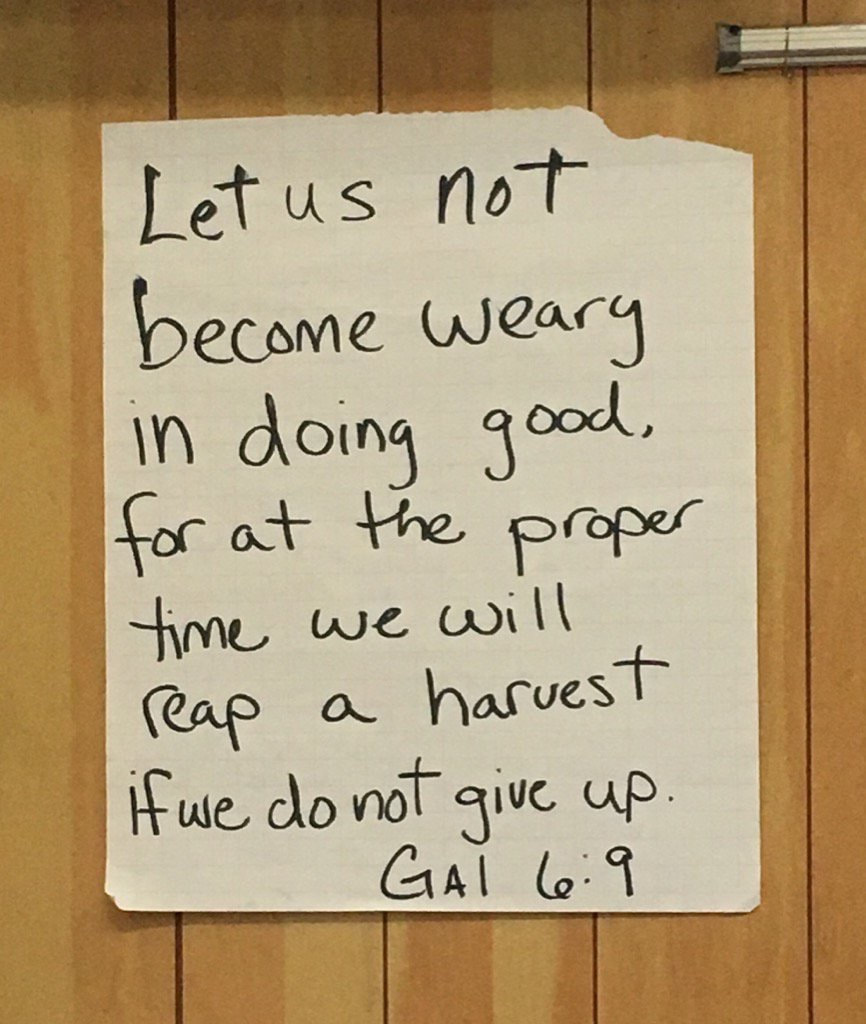 Let us not
become weary
in doing good,
for at the proper
time we will
reap a harvest
if we do not give up.
GAl 6:9